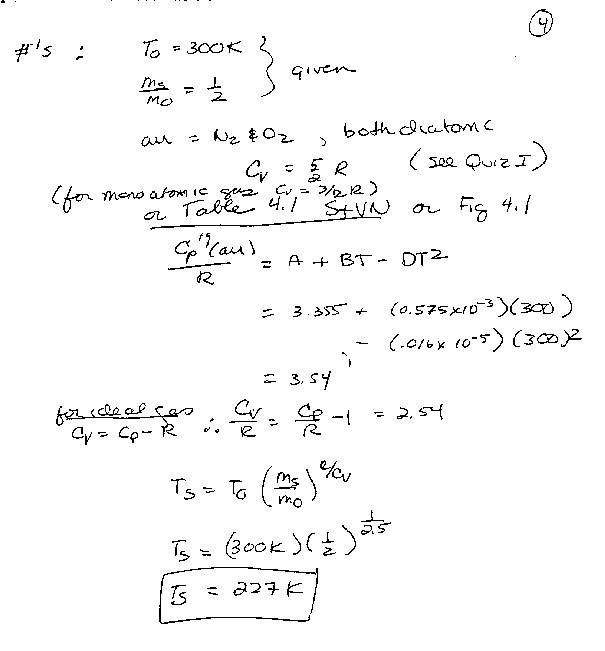 ④
#'s : T₀ = 300K
mₛ/m₀ = 1/2 } given
air = N₂ & O₂ , both diatomic
Cᵥ = 5/2 R (see Quiz I)
(for monoatomic gas Cᵥ = 3/2 R)
or Table 4.1 S+VN or Fig 4.1
Cₚ^ig (air)/R = A + BT - DT2
= 3.355 + (0.575x10⁻³)(300)
- (.016x10⁻⁵)(300)²
= 3.54
for ideal gas
Cᵥ = Cₚ - R ∴ Cᵥ/R = Cₚ/R - 1 = 2.54
Tₛ = T₀ (mₛ/m₀)^R/Cᵥ
Tₛ = (300K)(1/2)^1/2.5
Tₛ = 227 K